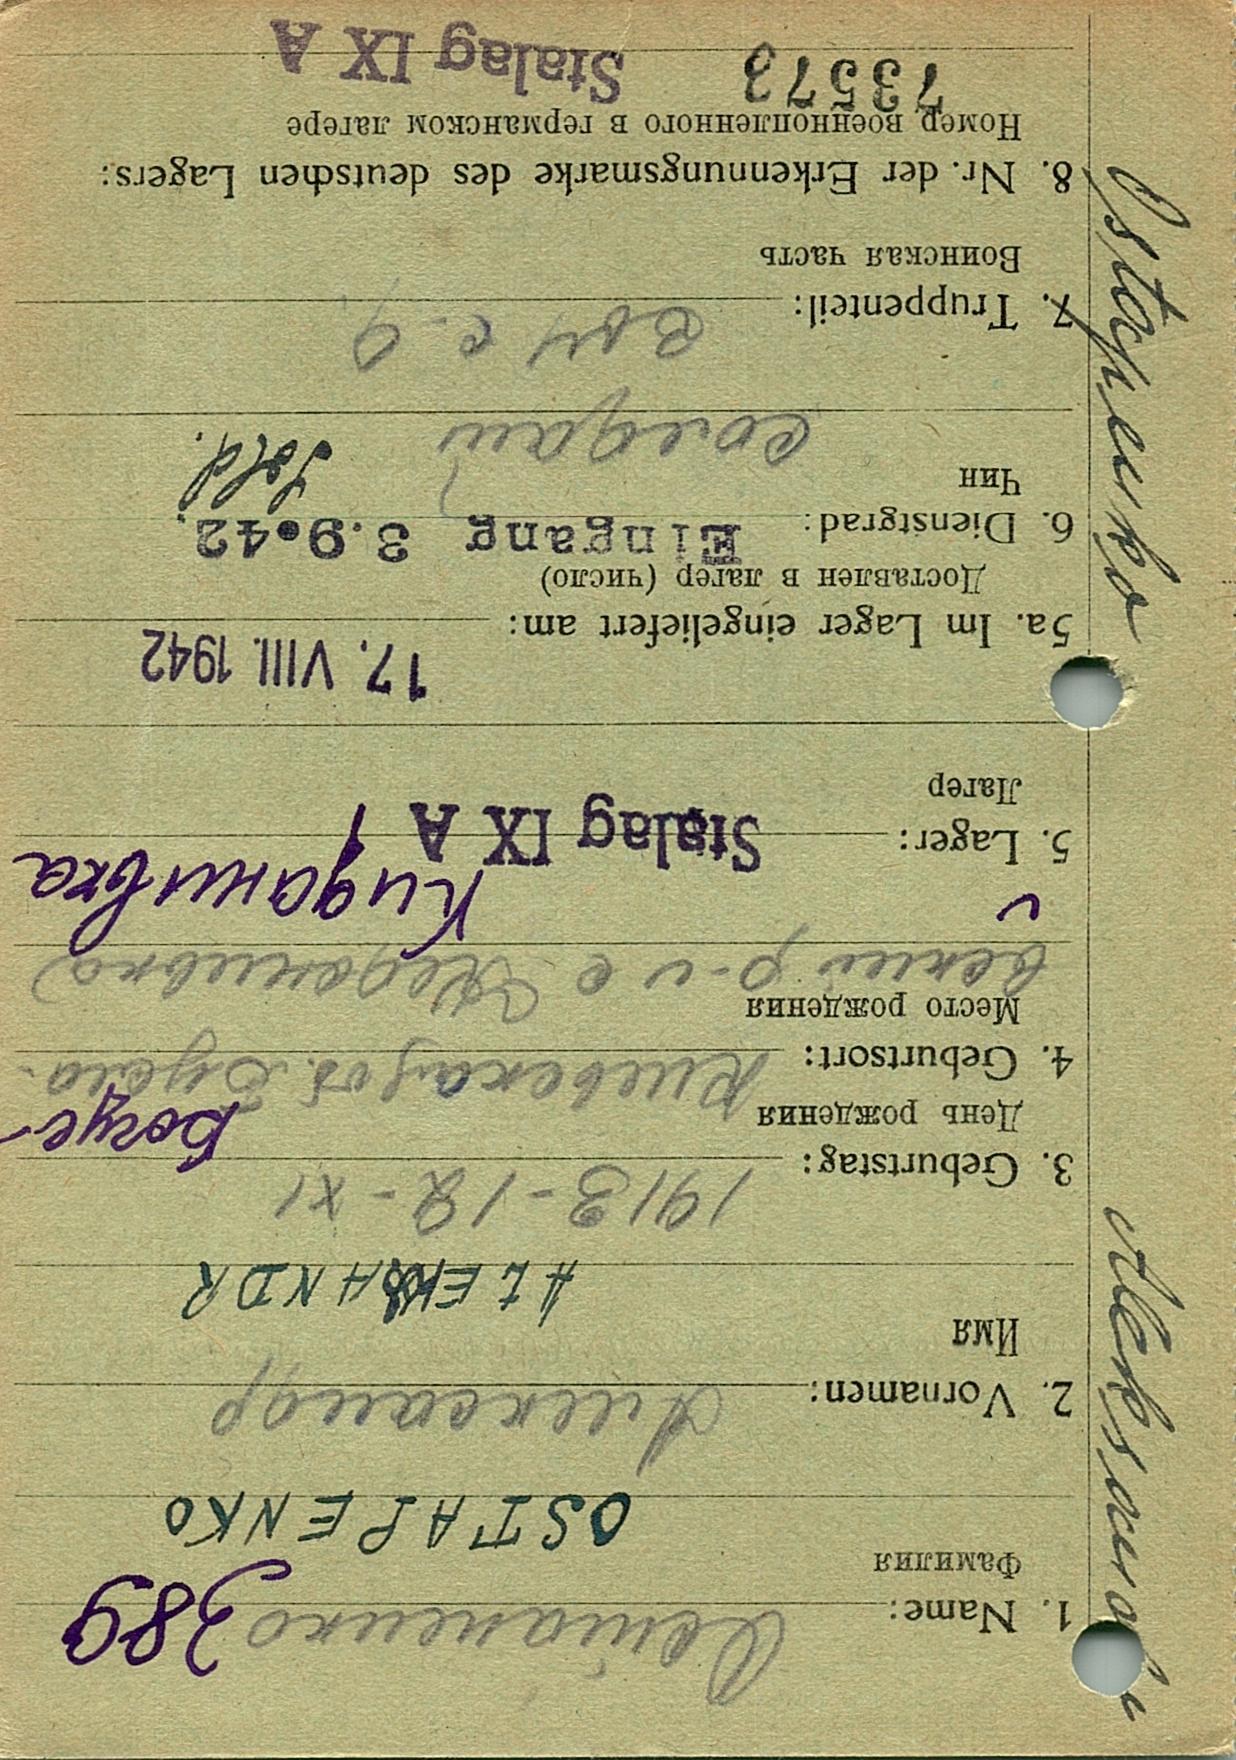 389
1. Name: Остапенко
Фамилия
OSTAPENKO
2. Vornamen: Александр
Имя
ALEKSANDR
3. Geburtstag: 1913-12-XI
День рождения
Богус-
4. Geburtsort: Киевская об. Бугус-
Место рождения
р-н с
Киданивка
5. Lager: Stalag IX A
Лагер
17. VIII. 1942
5a. Im Lager eingeliefert am:
Доставлен в лагер (число)
Eingang 3.9.42.
6. Dienstgrad: Sold.
Чин
солдат
7. Truppenteil:
Воинская часть
8. Nr. der Erkennungsmarke des deutschen Lagers:
Номер военнопленного в германском лагере
73573 Stalag IX A
Ostapenko Aleksandr